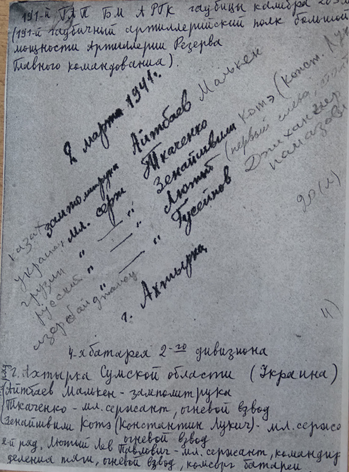 191-й ГАП БМ АРГК гаубицы калибра
(191-й гаубичный артиллерийский полк большой
мощности Артиллерии Резерва
Главного командования).
2 марта 1941 г.
казах замполитрука Айтбаев Малькен
украинец мл. серж Ткаченко
грузин " — " Зенайшвили Котэ (Конст. Лук
русский " — " Лютый (первый слева,
азербайджанец " — " Гусейнов Джихангир
г. Ахтырка
4-я батарея 2-го дивизиона
г. Ахтырка Сумской области (Украина)
Айтбаев Малькен - замполитрука
Ткаченко - мл. сержант, огневой взвод
Зенайшвили Котэ (Константин Лукич) - мл. сержа
огневой взвод
й ряд, Лютый Лев Павлович - мл. сержант, командир
деления тяги, огневой взвод, комсорг батареи